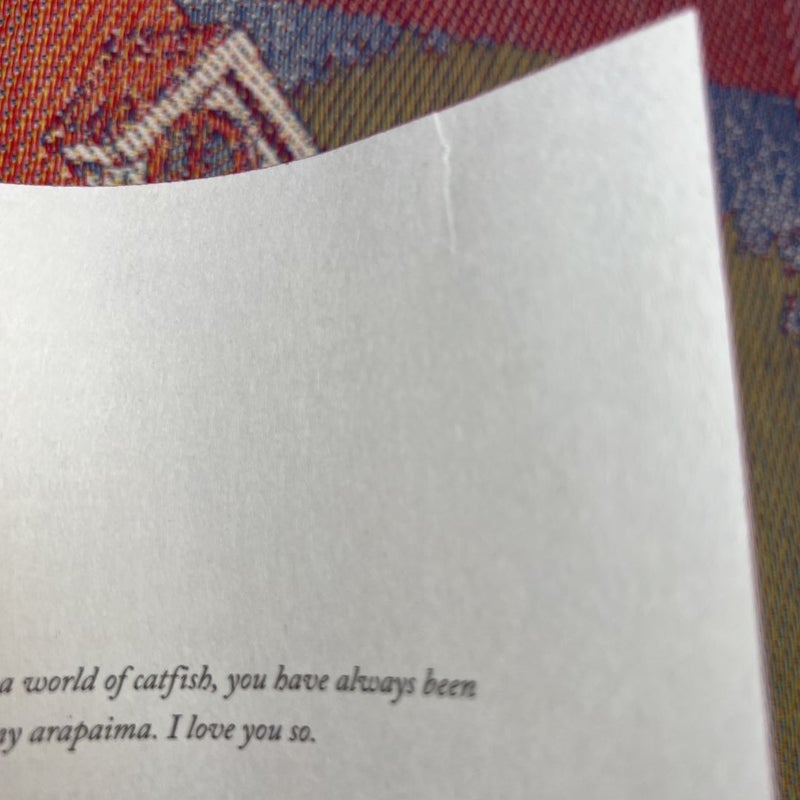 a world of catfish, you have always been
ny arapaima. I love you so.